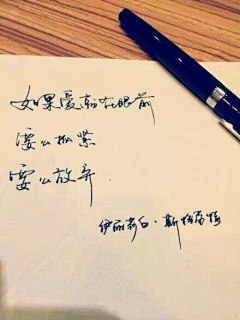 如果愛就在眼前
要么抓紧
要么放弃
伊丽莎白·斯